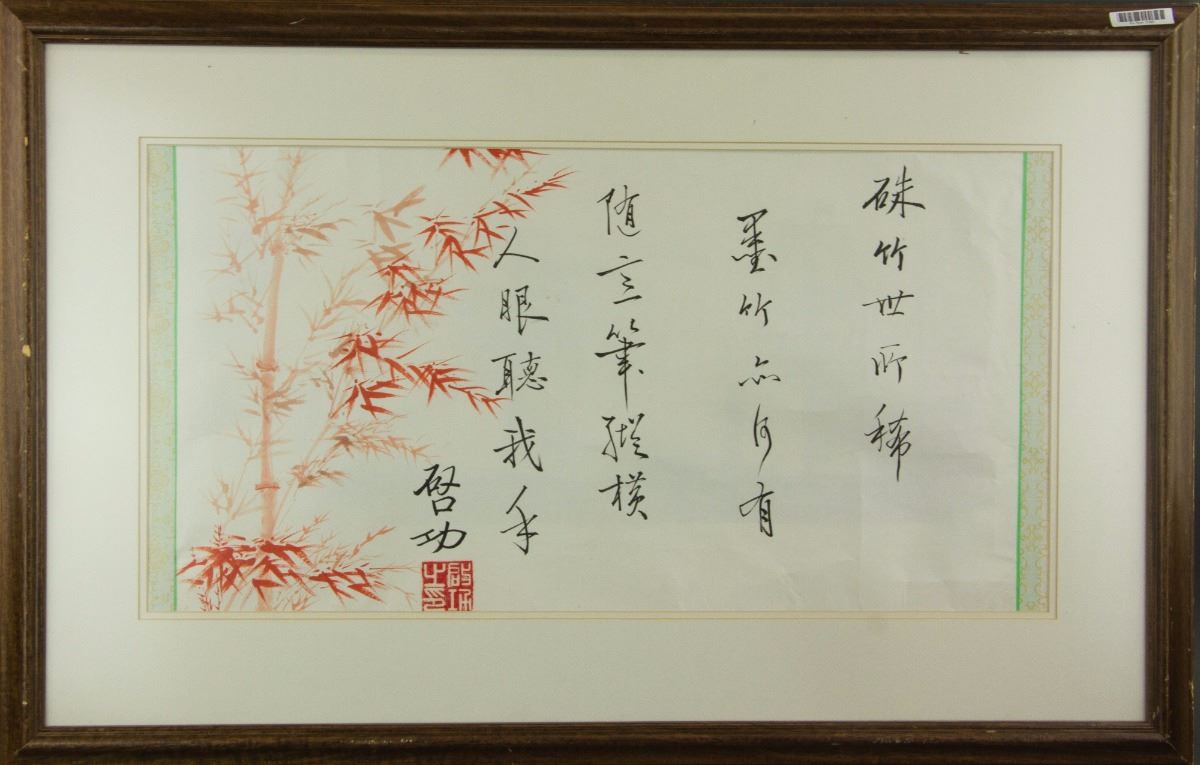 硃竹世所稀
墨竹亦何有
随意筆縱横
人眼聽我手
啓功
啓功之印